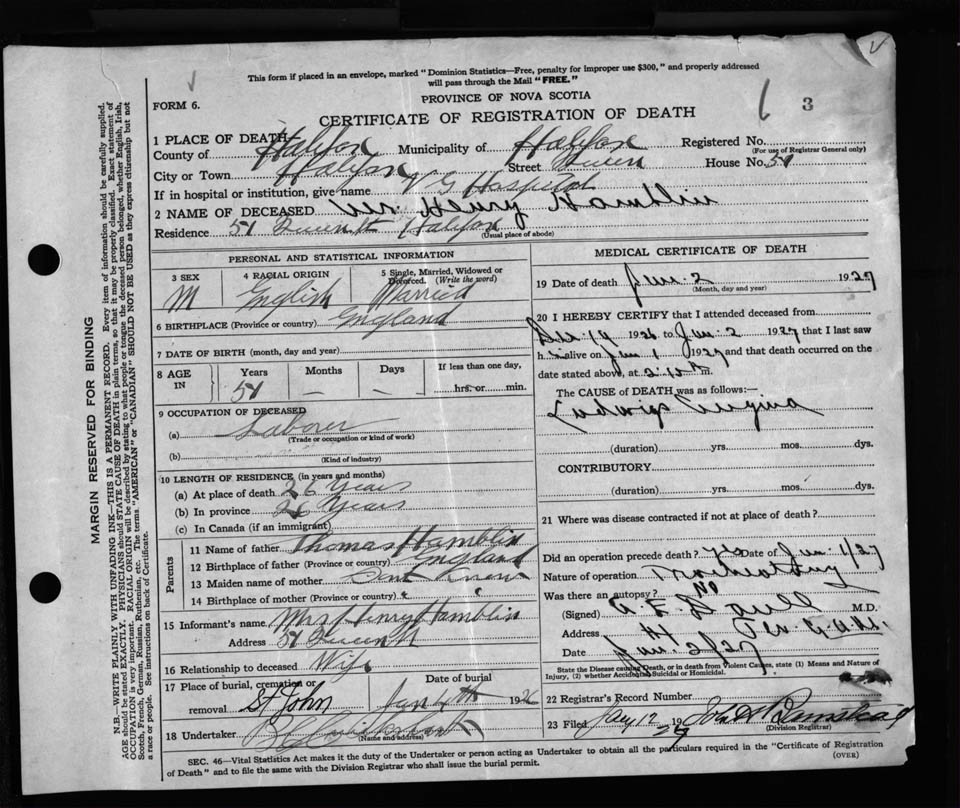 This form if placed in an envelope, marked "Dominion Statistics—Free, penalty for improper use $300," and properly addressed
will pass through the Mail "FREE."
FORM 6.
PROVINCE OF NOVA SCOTIA
3
CERTIFICATE OF REGISTRATION OF DEATH
1 PLACE OF DEATH
County of Halifax Municipality of Halifax Registered No.
(For use of Registrar General only)
City or Town Halifax Street Queen House No. 51
If in hospital or institution, give name V G Hospital
2 NAME OF DECEASED Henry Hamblin
Residence 51 Queen St Halifax
(Usual place of abode)
PERSONAL AND STATISTICAL INFORMATION
3 SEX M
4 RACIAL ORIGIN English
5 Single, Married, Widowed or Divorced. (Write the word) Married
6 BIRTHPLACE (Province or country) England
7 DATE OF BIRTH (month, day and year)
8 AGE IN Years 51 Months — Days — If less than one day, hrs. or min.
9 OCCUPATION OF DECEASED
(a) Laborer
(Trade or occupation or kind of work)
(b)
(Kind of industry)
10 LENGTH OF RESIDENCE (in years and months)
(a) At place of death 26 Years
(b) In province 26 Years
(c) In Canada (if an immigrant)
Parents
11 Name of father Thomas Hamblin
12 Birthplace of father (Province or country) England
13 Maiden name of mother Dont Know
14 Birthplace of mother (Province or country)
15 Informant's name Mrs Henry Hamblin
Address 51 Queen St
16 Relationship to deceased Wife
17 Place of burial, cremation or removal St John Date of burial Jan 4th 1926
18 Undertaker
(Name and address)
MEDICAL CERTIFICATE OF DEATH
19 Date of death Jan. 2 1927
(Month, day and year)
20 I HEREBY CERTIFY that I attended deceased from
Dec. 19 1926 to Jan. 2 1927 that I last saw
h im alive on Jan 1 1927 and that death occurred on the
date stated above, at 2:15 m.
The CAUSE of DEATH was as follows:—
Ludwigs Angina
(duration) yrs. mos. dys.
CONTRIBUTORY
(duration) yrs. mos. dys.
21 Where was disease contracted if not at place of death?
Did an operation precede death? Yes Date of Jan. 1/27
Nature of operation Tracheotomy
Was there an autopsy? No
(Signed) M.D.
Address
Date Jan. 2/27
State the Disease causing Death, or in death from Violent Causes, state (1) Means and Nature of
Injury, (2) whether Accidental, Suicidal or Homicidal.
22 Registrar's Record Number
23 Filed 19
(Division Registrar)
SEC. 46—Vital Statistics Act makes it the duty of the Undertaker or person acting as Undertaker to obtain all the particulars required in the "Certificate of Registration
of Death" and to file the same with the Division Registrar who shall issue the burial permit.
(OVER)
MARGIN RESERVED FOR BINDING
N.B.—WRITE PLAINLY WITH UNFADING INK—THIS IS A PERMANENT RECORD. Every item of information should be carefully supplied.
AGE should be stated EXACTLY. PHYSICIANS should STATE CAUSE OF DEATH in plain terms, so that it may be properly classified. Exact statement of
OCCUPATION is very important. RACIAL ORIGIN will be described by stating to what people or tongue the deceased person belonged, whether English, Irish,
Scotch, French, German, Russian, Ruthenian, etc. The terms "AMERICAN" or "CANADIAN" SHOULD NOT BE USED as they express citizenship but not
a race or people. See instructions on back of Certificate.